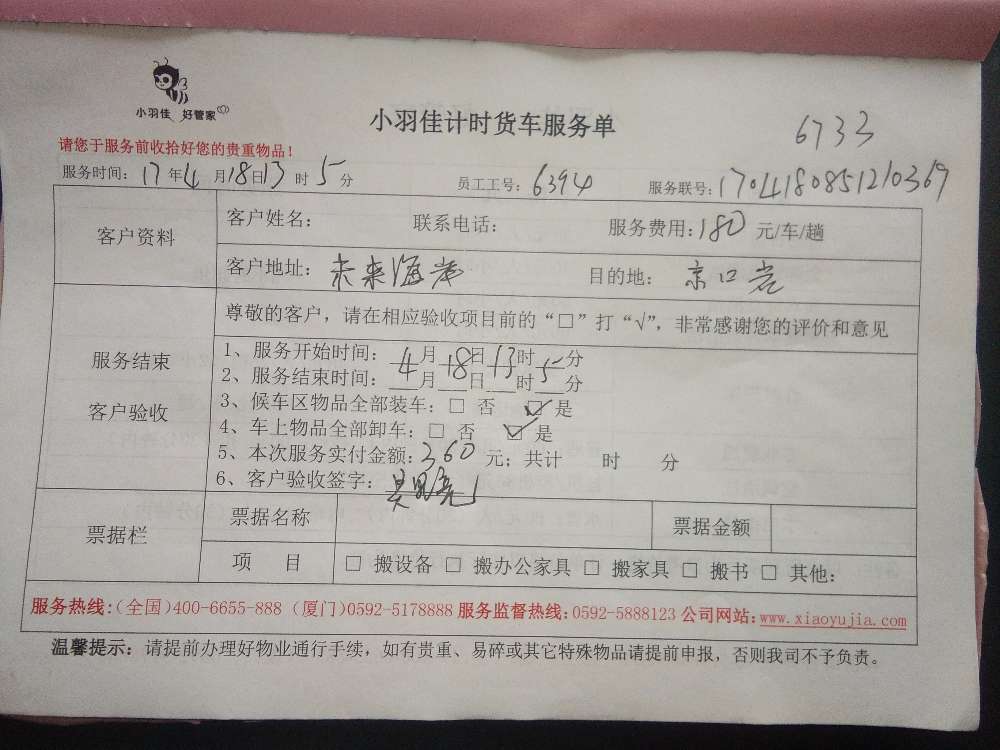 小羽佳 好管家
小羽佳计时货车服务单
6733
请您于服务前收拾好您的贵重物品！
服务时间：17年4月18日13时5分 员工工号：6394 服务联号：1704180851210369
客户资料 客户姓名： 联系电话： 服务费用：180元/车/趟
客户地址：未来海岸 目的地：京口岩
服务结束 客户验收
尊敬的客户，请在相应验收项目前的“□”打“√”，非常感谢您的评价和意见
1、服务开始时间：4月18日13时5分
2、服务结束时间：___月___日___时___分
3、候车区物品全部装车：□ 否 ☑ 是
4、车上物品全部卸车：□ 否 ☑ 是
5、本次服务实付金额：360元；共计 时 分
6、客户验收签字：
票据栏 票据名称 票据金额
项 目 □ 搬设备 □ 搬办公家具 □ 搬家具 □ 搬书 □ 其他：
服务热线：（全国）400-6655-888（厦门）0592-5178888 服务监督热线：0592-5888123 公司网站：www.xiaoyujia.com
温馨提示：请提前办理好物业通行手续，如有贵重、易碎或其它特殊物品请提前申报，否则我司不予负责。